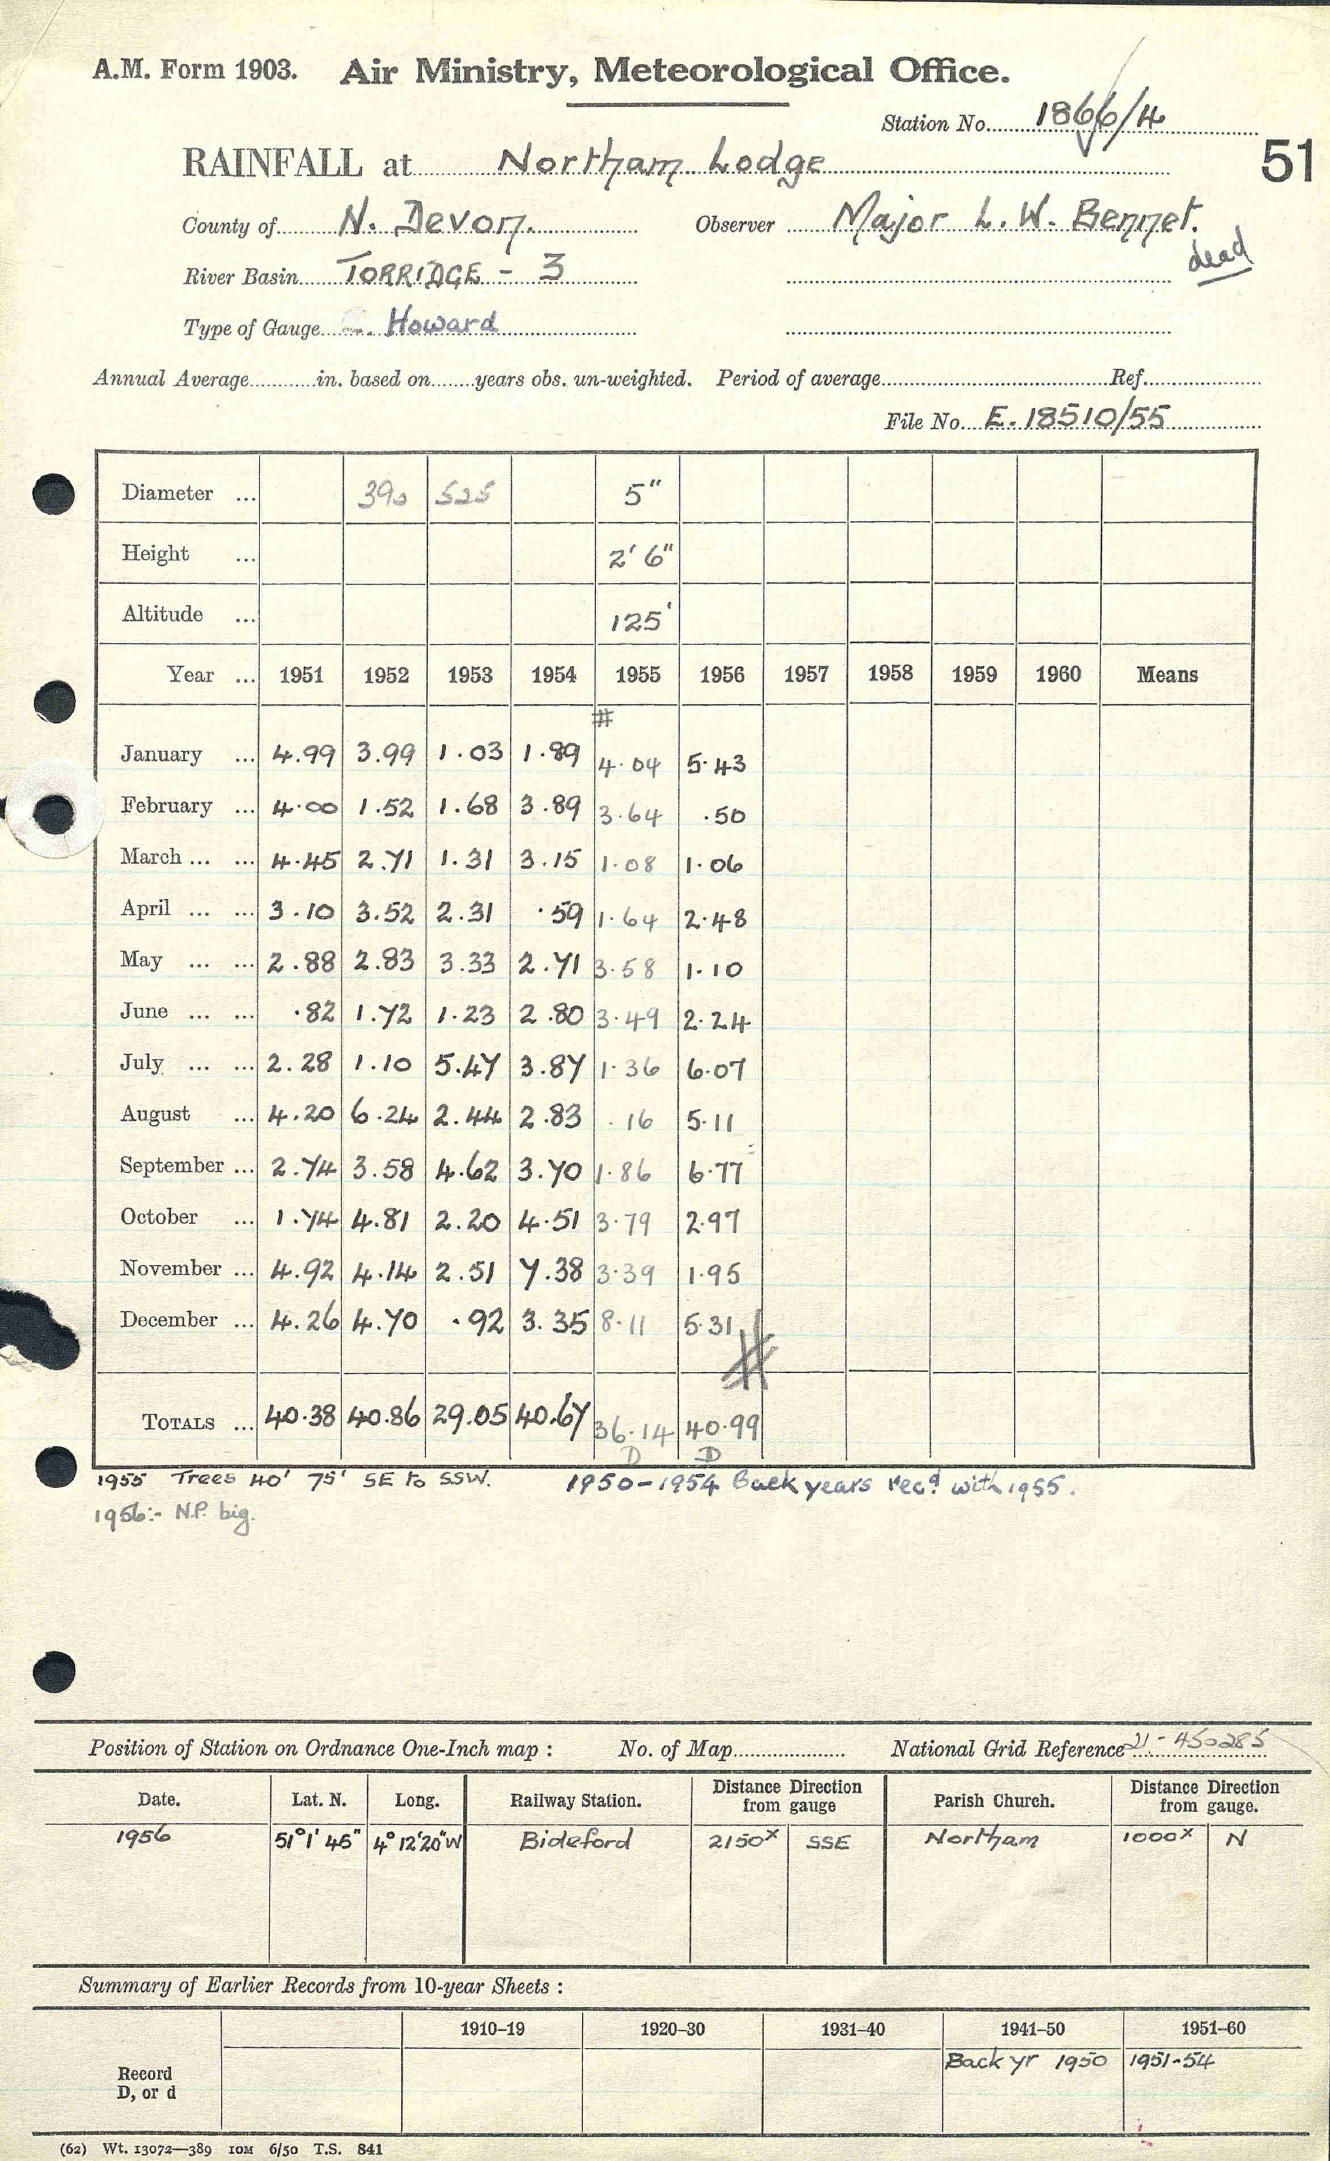 A.M. Form 1903. Air Ministry, Meteorological Office.
Station No. 1866/4
51
RAINFALL at Northam Lodge
County of N. Devon. Observer Major L. W. Bennet.
dead
River Basin TORRIDGE - 3
Type of Gauge Howard
Annual Average in. based on years obs. un-weighted. Period of average Ref.
File No. E.18510/55
Diameter ... 390 525 5"
Height ... 2' 6"
Altitude ... 125'
Year ... 1951 1952 1953 1954 1955 1956 1957 1958 1959 1960 Means
#
January ... 4.99 3.99 1.03 1.89 4.04 5.43
February ... 4.00 1.52 1.68 3.89 3.64 .50
March ... ... 4.45 2.71 1.31 3.15 1.08 1.06
April ... ... 3.10 3.52 2.31 .59 1.64 2.48
May ... ... 2.88 2.83 3.33 2.71 3.58 1.10
June ... ... .82 1.72 1.23 2.80 3.49 2.24
July ... ... 2.28 1.10 5.47 3.87 1.36 6.07
August ... 4.20 6.24 2.44 2.83 .16 5.11
September ... 2.74 3.58 4.62 3.70 1.86 6.77
October ... 1.74 4.81 2.20 4.51 3.79 2.97
November ... 4.92 4.14 2.51 7.38 3.39 1.95
December ... 4.26 4.70 .92 3.35 8.11 5.31
#
TOTALS ... 40.38 40.86 29.05 40.67 36.14 40.99
D D
1955 Trees 40' 75' SE to SSW. 1950-1954 Back years recd with 1955.
1956:- N.P. big.
Position of Station on Ordnance One-Inch map : No. of Map National Grid Reference 21-450285
Date. Lat. N. Long. Railway Station. Distance from Direction gauge Parish Church. Distance from Direction gauge.
1956 51°1'45" 4°12'20"W Bideford 2150x SSE Northam 1000x N
Summary of Earlier Records from 10-year Sheets :
1910–19 1920–30 1931–40 1941–50 1951–60
Back yr 1950 1951-54
Record
D, or d
(62) Wt. 13072—389 10M 6/50 T.S. 841